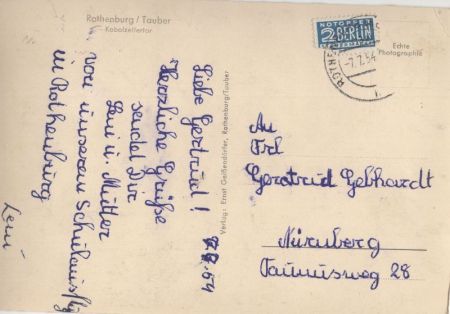 Rothenburg / Tauber
Kobolzellertor
7.7.54
Liebe Gertrud!
Herzliche Grüße
sendet Dir
Leni u. Mutter
von unserem Schulausflug
in Rothenburg
Leni
Verlag: Ernst Geißendörfer, Rothenburg/Tauber
NOTOPFER
2 BERLIN
STEUERMARKE
ROTHEN
-7.7.54
Echte
Photographie
An
Frl
Gertrud Gebhardt
Nürnberg
Taunusweg 28